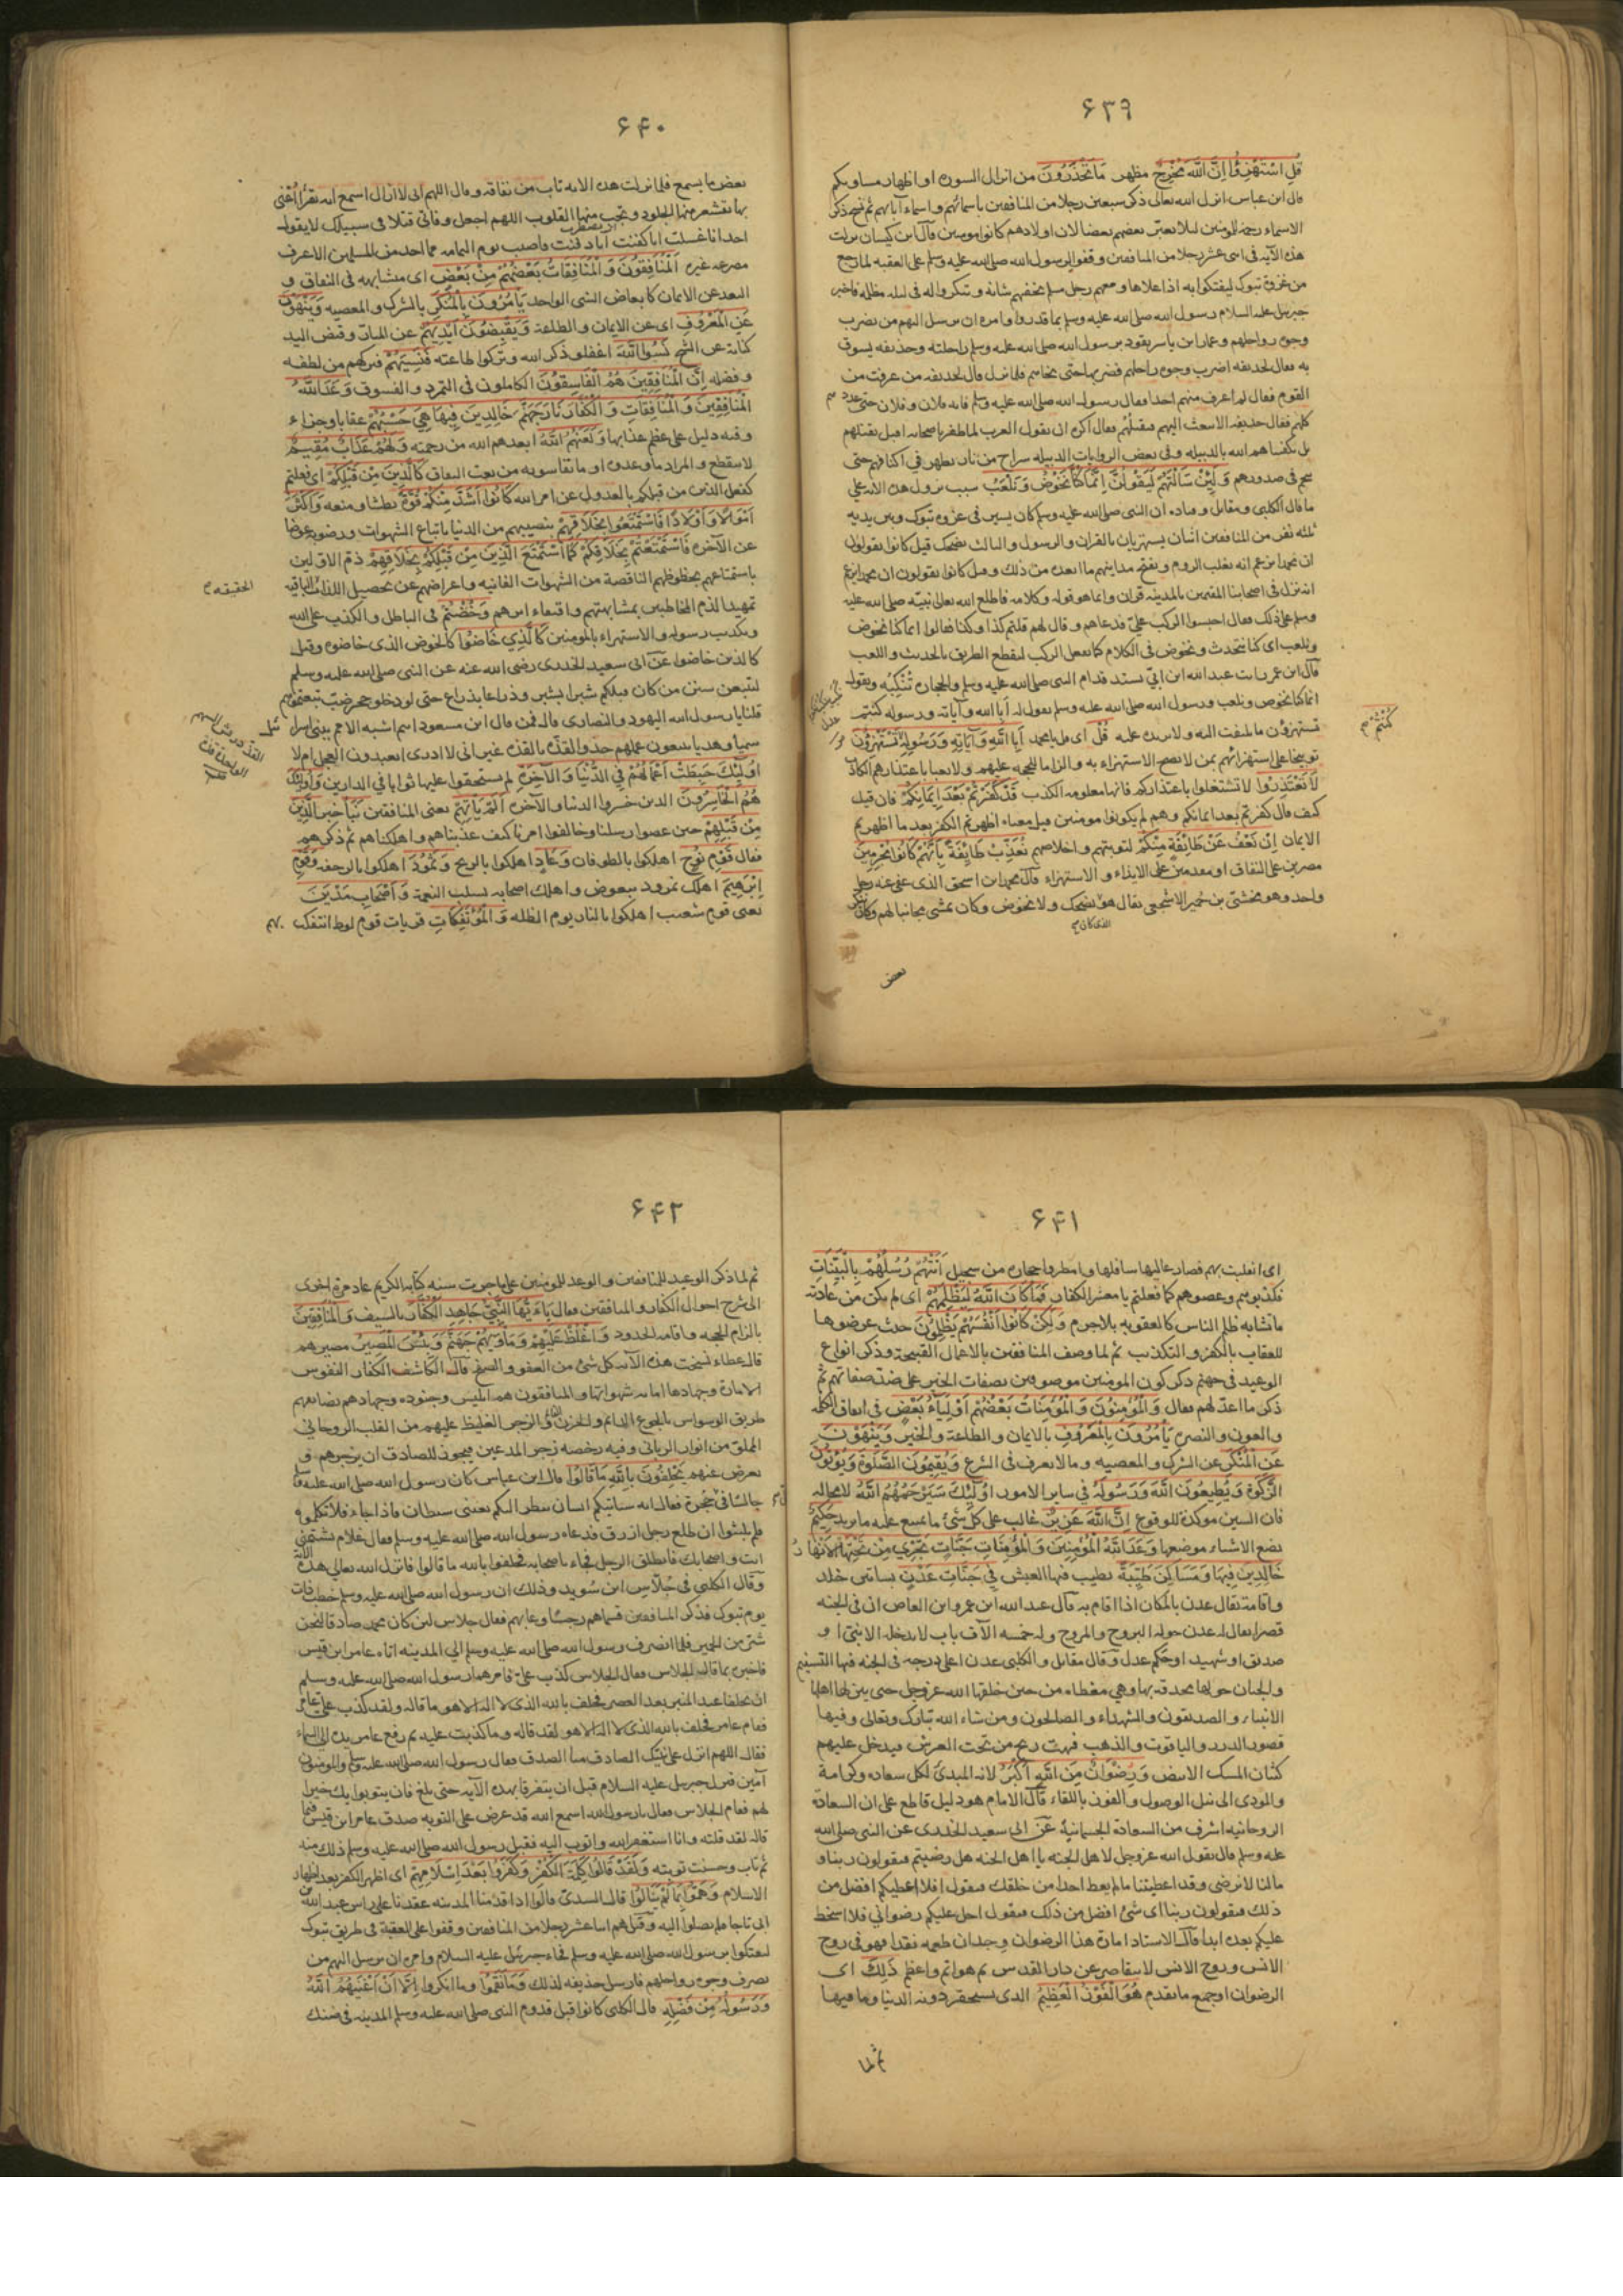 ۶۳۹
قل استهزءوا ان الله مخرج مظهر ما تحذرون من انزال السورة او اظهار مساويكم
قال ابن عباس انزل الله تعالى ذكر سبعين رجلا من المنافقين باسمائهم واسماء آبائهم ثم نسخ ذكر
الاسماء رحمة للمؤمنين لئلا يعير بعضهم بعضا لان اولادهم كانوا مؤمنين قال ابن كيسان نزلت
هذه الآية في اثنى عشر رجلا من المنافقين وقفوا لرسول الله صلى الله عليه وسلم على العقبة لما رجع
من غزوة تبوك ليفتكوا به اذا علاها ومعهم رجل مسلم يخفيهم شانه وتنكروا له في ليلة مظلمة فاخبر
جبريل عليه السلام رسول الله صلى الله عليه وسلم بما قدروا وامره ان يرسل اليهم من يضرب
وجوه رواحلهم وعمار ابن ياسر يقود برسول الله صلى الله عليه وسلم راحلته وحذيفة يسوق
به فقال لحذيفة اضرب وجوه رواحلهم فضربها حتى نحاهم فلما نزل قال لحذيفة من عرفت من
القوم فقال لم اعرف منهم احدا فقال رسول الله صلى الله عليه وسلم فانه فلان وفلان حتى عدهم
كلهم فقال حذيفة الا تبعث اليهم فتقتلهم فقال اكره ان يقول العرب لما ظفر باصحابه اقبل يقتلهم
بل يكفيناهم الله بالدبيلة وفي بعض الروايات الدبيلة سراج من نار يظهر في اكتافهم حتى
ينجم في صدورهم ولئن سالتهم ليقولن انما كنا نخوض ونلعب سبب نزول هذه الآية على
ما قال الكلبي ومقاتل وقتادة ان النبي صلى الله عليه وسلم كان يسير في غزوة تبوك وبين يديه
ثلثة نفر من المنافقين اثنان يستهزيان بالقران والرسول والثالث يضحك قيل كانوا يقولون
ان محمدا يزعم انه يغلب الروم ويفتح مداينهم ما ابعده من ذلك وقيل كانوا يقولون ان محمدا يزعم
انه نزل في اصحابنا المقيمين بالمدينة قران وانما هو قوله وكلامه فاطلع الله تعالى نبيه صلى الله عليه
وسلم على ذلك فقال احبسوا الركب علي فدعاهم وقال لهم قلتم كذا وكذا فقالوا انما كنا نخوض
ونلعب اى كنا نتحدث ونخوض في الكلام كما يفعل الركب لنقطع الطريق بالحديث واللعب
قال ابن عمر رايت عبد الله ابن ابي يشتد قدام النبي صلى الله عليه وسلم والحجارة تنكبه ويقول
انما كنا نخوض ونلعب ورسول الله صلى الله عليه وسلم يقول له ابالله وآياته ورسوله كنتم
تستهزؤن ما يلتفت اليه ولا يزيده عليه قل اى قل يا محمد ابالله وآياته ورسوله كنتم تستهزؤن
توبيخا على استهزائهم بمن لا يصح الاستهزاء به والزاما للحجة عليهم ولا تعبا باعتذارهم الكاذب
لا تعتذروا لا تشتغلوا باعتذاركم فانها معلومة الكذب قد كفرتم بعد ايمانكم فان قيل
كيف قال كفرتم بعد ايمانكم وهم لم يكونوا مومنين قيل معناه اظهرتم الكفر بعد ما اظهرتم
الايمان ان نعف عن طائفة منكم لتوبتهم واخلاصهم نعذب طايفة بانهم كانوا مجرمين
مصرين على النفاق او مقدمين على الايذاء والاستهزاء قال محمد ابن اسحق الذى عفى عنه رجل
واحد وهو مخشي بن حمير الاشجعي يقال هو الذى كان يضحك ولا يخوض وكان يمشي مجانبا لهم وينكر
بعض
۶۴۰
بعض ما يسمع فلما نزلت هذه الآية تاب من نفاقه وقال اللهم انى لا ازال اسمع اية تقرأ اعني
بها تقشعر منها الجلود وتجب منها القلوب اللهم اجعل وفاتي قتلا في سبيلك لا يقول
احد انا غسلت انا كفنت انا دفنت فاصيب يوم اليمامة فما احد من المسلمين الا عرف
مصرعه غيره المنافقون والمنافقات بعضهم من بعض اى متشابهة في النفاق و
البعد عن الايمان كابعاض الشي الواحد يامرون بالمنكر بالشرك والمعصية وينهون
عن المعروف اى عن الايمان والطاعة ويقبضون ايديهم عن المبار وقبض اليد
كناية عن الشح نسوا الله اغفلوا ذكر الله وتركوا طاعته فنسيهم فتركهم من لطفه
وفضله ان المنافقين هم الفاسقون الكاملون في التمرد والفسوق وعد الله
المنافقين والمنافقات والكفار نار جهنم خالدين فيها هي حسبهم عقابا وجزاء
وفيه دليل على عظم عذابها ولعنهم الله ابعدهم الله من رحمته ولهم عذاب مقيم
لا ينقطع والمراد ما وعدوه او ما تقاسونه من تعب النفاق كالذين من قبلكم اى فعلتم
كفعل الذين من قبلكم بالعدول عن امر الله كانوا اشد منكم قوة بطشا ومنعة واكثر
اموالا واولادا فاستمتعوا بخلاقهم بنصيبهم من الدنيا باتباع الشهوات ورضوا به عوضا
عن الآخرة فاستمتعتم بخلاقكم كما استمتع الذين من قبلكم بخلاقهم ذم الاولين
باستمتاعهم بحظوظهم الناقصة من الشهوات الفانية واعراضهم عن تحصيل اللذات الباقية
الحقيقة
تمهيدا لذم المخاطبين بمشابهتهم واقتفاء اثرهم وخضتم في الباطل والكذب على الله
وتكذيب رسوله والاستهزاء بالمومنين كالذي خاضوا كالخوض الذى خاضوه وقيل
كالذين خاضوا عن ابى سعيد الخدرى رضى الله عنه عن النبى صلى الله عليه وسلم
لتتبعن سنن من كان قبلكم شبرا بشبر وذراعا بذراع حتى لو دخلو جحر ضب تبعتموهم
قلنا يا رسول الله اليهود والنصارى قال فمن قال ابن مسعود انتم اشبه الامم ببني اسرائيل
سمتا وهديا تتبعون عملهم حذو القذة بالقذة غير انى لا ادرى اتعبدون العجل ام لا
اولئك حبطت اعمالهم في الدنيا والآخرة لم يستحقوا عليها ثوابا في الدارين واولئك
هم الخاسرون الذين خسروا الدنيا والآخرة الم ياتهم يعنى المنافقين نبأ خبر الذين
من قبلهم حين عصوا رسلنا وخالفوا امرنا كيف عذبناهم واهلكناهم ثم ذكرهم
فقال قوم نوح اهلكوا بالطوفان وعاد اهلكوا بالريح وثمود اهلكوا بالرجفة وقوم
ابرهيم اهلك نمرود ببعوض واهلك اصحابه بسلب النعمة واصحاب مدين
يعنى قوم شعيب اهلكوا بالنار يوم الظلة والموتفكات قريات قوم لوط ائتفكت بهم
۶۴۱
اى انقلبت بهم فصار عاليها سافلها وامطروا حجارة من سجيل اتتهم رسلهم بالبينات
فكذبوهم وعصوهم كما فعلتم يا معشر الكفار فما كان الله ليظلمهم اى لم يكن من عادته
ما يشابه ظلم الناس كالعقوبة بلا جرم ولكن كانوا انفسهم يظلمون حيث عرضوها
للعقاب بالكفر والتكذيب ثم لما وصف المنافقين بالاعمال القبيحة وذكر انواع
الوعيد في جهنم ذكر كون المومنين موصوفين بصفات الخير على ضد صفاتهم ثم
ذكر ما اعد لهم فقال والمؤمنون والمؤمنات بعضهم اولياء بعض في اتفاق الكلمة
والعون والنصرة يامرون بالمعروف بالايمان والطاعة والخير وينهون
عن المنكر عن الشرك والمعصية وما لا يعرف في الشرع ويقيمون الصلوة ويؤتون
الزكوة ويطيعون الله ورسوله في ساير الامور اولئك سيرحمهم الله لا محالة
فان السين موكدة للوقوع ان الله عزيز غالب على كل شئ ما يمتنع عليه ما يريد حكيم
يضع الاشياء موضعها وعد الله المؤمنين والمؤمنات جنات تجري من تحتها الانهار
خالدين فيها ومساكن طيبة يطيب فيها العيش في جنات عدن بساتين خلد
واقامة يقال عدن بالمكان اذا اقام به قال عبد الله ابن عمرو ابن العاص ان في الجنة
قصرا يقال له عدن حوله البروج والمروج وله خمسة آلاف باب لا يدخله الا نبي او
صديق او شهيد او حكم عدل وقال مقاتل والكلبي عدن اعلى درجة في الجنة فيها التسنيم
والجنان حولها محدقة بها وهي مغطاة من حين خلقها الله عز وجل حتى ينزلها اهلها
الانبياء والصديقون والشهداء والصالحون ومن شاء الله تبارك وتعالى وفيها
قصور الدرر والياقوت والذهب فهبت ريح من تحت العرش فيدخل عليهم
كثبان المسك الابيض ورضوان من الله اكبر لانه المبدئ لكل سعادة وكرامة
والمودى الى نيل الوصول والفوز باللقاء قال الامام هو دليل قاطع على ان السعادة
الروحانية اشرف من السعادة الجسمانية عن ابى سعيد الخدرى عن النبى صلى الله
عليه وسلم قال يقول الله عز وجل لاهل الجنة يا اهل الجنة هل رضيتم فيقولون ربنا و
ما لنا لا نرضى وقد اعطيتنا ما لم يعط احدا من خلقك فيقول افلا اعطيكم افضل من
ذلك فيقولون ربنا اى شئ افضل من ذلك فيقول احل عليكم رضواني فلا اسخط
عليكم بعده ابدا قال الاستاد امارة هذا الرضوان وجدان طعمه نقدا فهو في روح
الانس وروح الانس لا يتقاصر عن دار القدس بل هو اتم واعظم ذلك اى
الرضوان او جميع ما تقدم هو الفوز العظيم الذى يستحقر دونه الدنيا وما فيها
ثم لما
۶۴۲
ثم لما ذكر الوعيد للمنافقين والوعد للمومنين على ما جرت سنة كتابه الكريم عاد مرة اخرى
الى شرح احوال الكفار والمنافقين فقال يا ايها النبي جاهد الكفار بالسيف والمنافقين
بالزام الحجة واقامة الحدود واغلظ عليهم وماويهم جهنم وبئس المصير مصيرهم
قال عطاء نسخت هذه الآية كل شئ من العفو والصفح قال الكاشف الكفار النفوس
الامارة وجهادها اماتة شهواتها والمنافقون هم ابليس وجنوده وجهادهم تضايقهم
طريق الوسواس بالجوع الدايم والحزن والزجر الغليظ عليهم من القلب الروحاني
المملو من انوار الرباني وفيه رخصة زجر المدعين فيجوز للصادق ان يزجرهم و
يعرض عنهم يحلفون بالله ما قالوا قال ابن عباس كان رسول الله صلى الله عليه وسلم
جالسا في حجرة فقال انه سياتيكم انسان ينظر اليكم بعيني شيطان فاذا جاء فلا تكلموه
فلم يلبثوا ان طلع رجل ازرق فدعاه رسول الله صلى الله عليه وسلم فقال علام تشتمني
انت واصحابك فانطلق الرجل فجاء باصحابه فحلفوا بالله ما قالوا فانزل الله تعالى هذه الآية
وقال الكلبي في جلاس ابن سويد وذلك ان رسول الله صلى الله عليه وسلم خطب ذات
يوم بتبوك فذكر المنافقين فسماهم رجسا وعابهم فقال جلاس لئن كان محمد صادقا لنحن
شر من الحمير فلما انصرف رسول الله صلى الله عليه وسلم الى المدينة اتاه عامر ابن قيس
فاخبره بما قال الجلاس فقال الجلاس كذب علي فامرهما رسول الله صلى الله عليه وسلم
ان يحلفا عند المنبر بعد العصر فحلف بالله الذى لا اله الا هو ما قاله ولقد كذب علي عامر
فقام عامر فحلف بالله الذى لا اله الا هو لقد قاله وما كذبت عليه ثم رفع عامر يده الى السماء
فقال اللهم انزل على نبيك الصادق منا الصدق فقال رسول الله صلى الله عليه وسلم والمومنون
آمين فنزل جبريل عليه السلام قبل ان يتفرقا بهذه الآية حتى بلغ فان يتوبوا يك خيرا
لهم فقام الجلاس فقال يا رسول الله اسمع الله قد عرض علي التوبة صدق عامر ابن قيس فيما
قال لقد قلته وانا استغفر الله واتوب اليه فقبل رسول الله صلى الله عليه وسلم ذلك منه
ثم تاب وحسنت توبته ولقد قالوا كلمة الكفر وكفروا بعد اسلامهم اى اظهر الكفر بعد اظهار
الاسلام وهموا بما لم ينالوا قال السدى قالوا اذا قدمنا المدينة عقدنا على راس عبد الله بن
ابى تاجا فلم يصلوا اليه وقيل هم اثنا عشر رجلا من المنافقين وقفوا على العقبة في طريق تبوك
ليفتكوا برسول الله صلى الله عليه وسلم فجاء جبرئيل عليه السلام وامره ان يرسل اليهم من
يصرف وجوه رواحلهم فارسل حذيفة لذلك وما نقموا وما انكروا الا ان اغنيهم الله
ورسوله من فضله قال الكلبي كانوا قبل قدوم النبى صلى الله عليه وسلم المدينة في ضنك